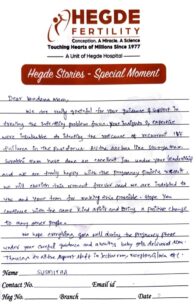 HEGDE
FERTILITY
Conception. A Miracle. A Science
Touching Hearts of Millions Since 1977
A Unit of Hegde Hospital
Hegde Stories - Special Moment
Dear Vandana Mam,
We are really grateful for your guidance & support in
treating the infertility problem. Your insights & expertise
were invaluable in identifying the root cause of recurrent IVF
failures in the past. All the doctors like Soumya mam,
mam have done an excellent job under your leadership
and we are truly happy with the pregnancy results
We will cherish this moment forever and we are indebted to
you and your team for making this possible. Hope you
continue with the same kind efforts and bring a positive change
to many other people.
We hope everything goes well during the pregnancy phase
under your careful guidance and a healthy baby gets delivered.
Thanks to all the support staff
Name SUSMITHA
Contact No. Email id
Heg No. Branch Date